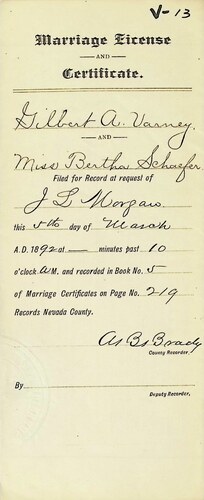 V-13
Marriage License
AND
Certificate.
Gilbert A. Varney
AND
Miss Bertha Schaefer
Filed for Record at request of
J L Morgan
this 5th day of March
A.D. 1892 at — minutes past 10
o'clock A M. and recorded in Book No. 5
of Marriage Certificates on Page No. 219
Records Nevada County.
As Bs Brady
County Recorder.
By
Deputy Recorder.